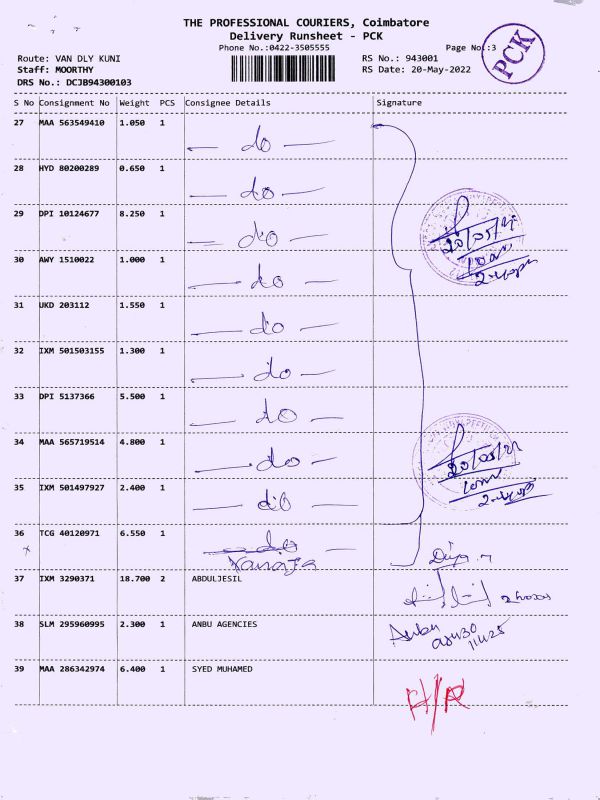 THE PROFESSIONAL COURIERS, Coimbatore
Delivery Runsheet - PCK
Phone No.:0422-3505555 Page No.:3
PCK
Route: VAN DLY KUNI RS No.: 943001
Staff: MOORTHY RS Date: 20-May-2022
DRS No.: DCJB94300103
S No Consignment No Weight PCS Consignee Details Signature
27 MAA 563549410 1.050 1 do
28 HYD 80200289 0.650 1 do
29 DPI 10124677 8.250 1 do
30 AWY 1510022 1.000 1 do
31 UKD 203112 1.550 1 do
32 IXM 501503155 1.300 1 do
33 DPI 5137366 5.500 1 do
34 MAA 565719514 4.800 1 do
35 IXM 501497927 2.400 1 do
36 TCG 40120971 6.550 1 do
37 IXM 3290371 18.700 2 ABDULJESIL
38 SLM 295960995 2.300 1 ANBU AGENCIES Anbu
39 MAA 286342974 6.400 1 SYED MUHAMED